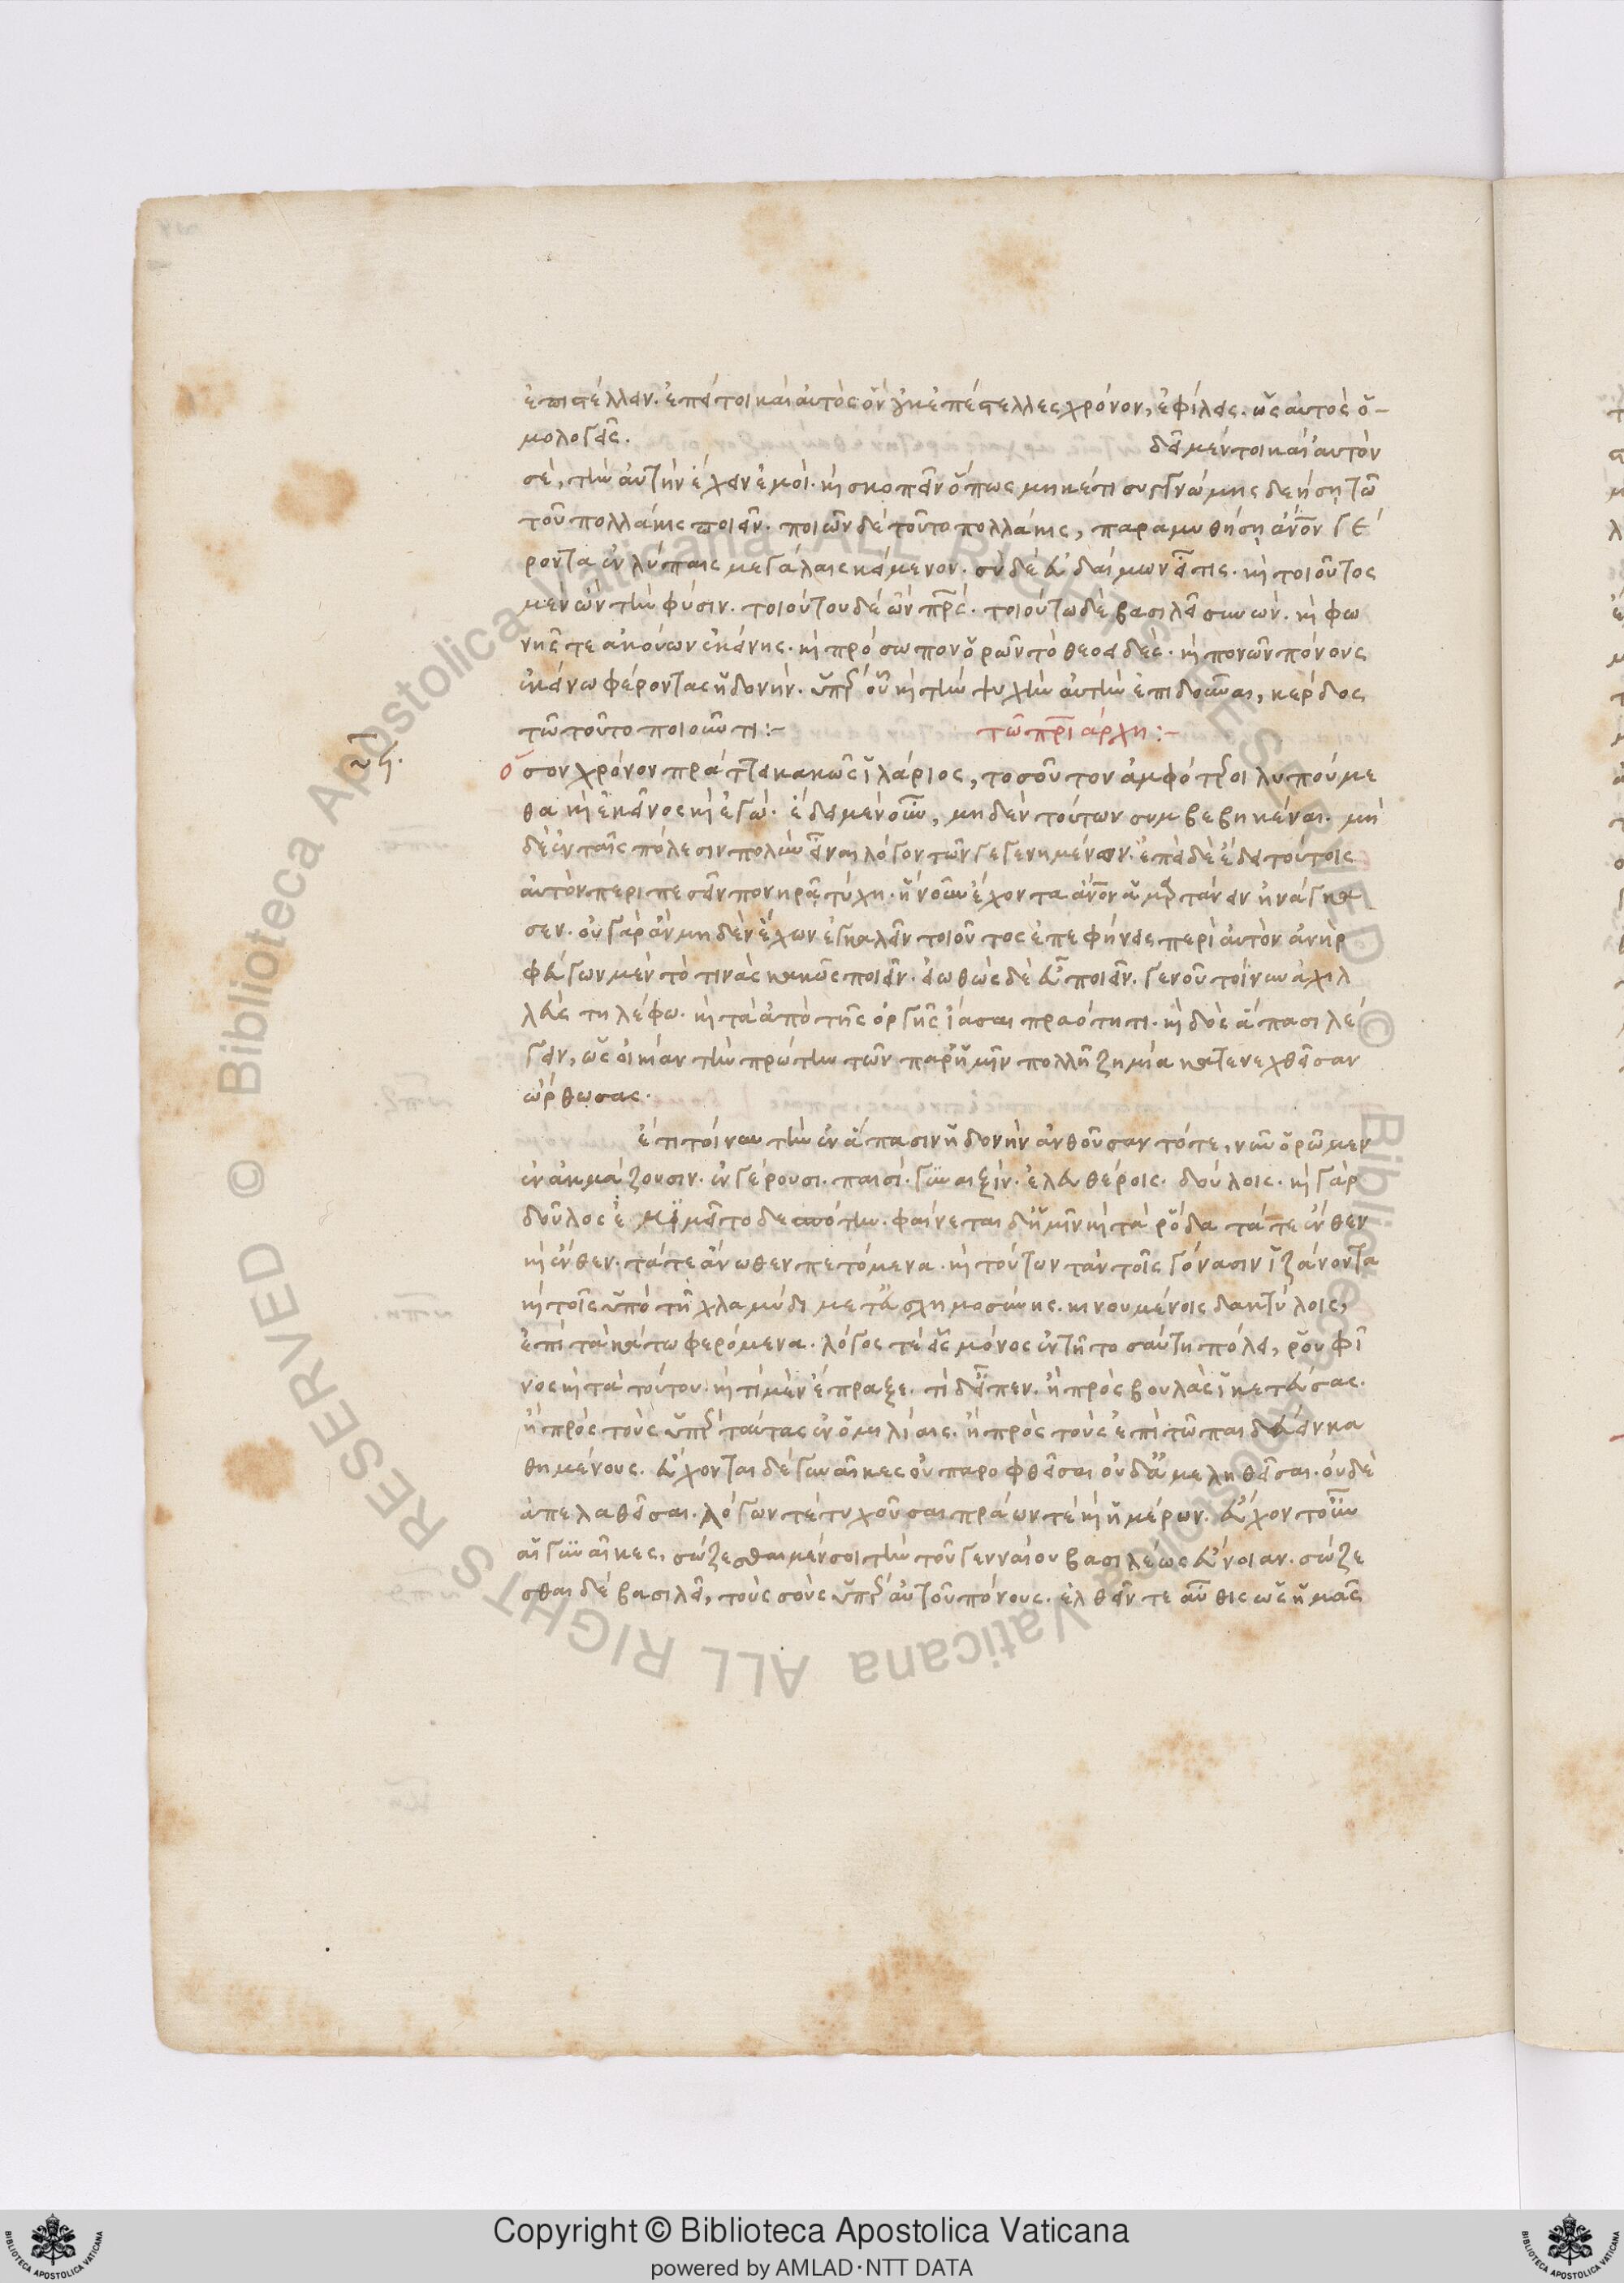 ἐπιστέλλειν. ἐπεί τοι καὶ αὐτὸς ὃν οὐκ ἐπέστελλες χρόνον, ἐφίλεις. ὡς αὐτὸς ὁ-
μολογεῖς. δεῖ μέντοι καὶ αὐτὸν
σὲ, τὴν αὐτὴν ἔχειν ἐμοί. κỳ σκοπεῖν ὅπως μηκέτι συγγνώμης δεήσῃ τῶ
τοῦ πολλάκις ποιεῖν. ποιῶν δὲ τοῦτο πολλάκις, παραμυθήσῃ ἄνον γέ
ροντα ἐν λύπαις μεγάλαις κείμενον. σὺ δὲ εὐδαίμων εἶ τις. καὶ τοιοῦτος
μὲν ὢν τὴν φύσιν. τοιούτου δὲ ὢν πρς. τοιούτω δὲ βασιλεῖ συνών. καὶ φω
νῆς τε ἀκούων ἐκείνης. καὶ πρόσωπον ὁρῶν τὸ θεοειδές. καὶ πονῶν πόνους
ἐκείνω φέροντας ἡδονήν. ὑπὲρ οὗ καὶ τὴν ψυχὴν αὐτὴν ἐπιδοῦναι, κέρδος
τῶ τοῦτο ποιοῦντι:-
τῶ πριάρχη:-
ὅσον χρόνον πράττει κακῶς ἱλάριος, τοσοῦτον ἀμφότεροι λυπούμε
θα καὶ ἐκεῖνος καὶ ἐγώ. ἔδει μὲν οὖν, μηδὲν τούτων συμβεβηκέναι. μὴ
δὲ ἐν ταῖς πόλεσιν πολὺν εἶναι λόγον τῶν γεγενημένων. ἐπεὶ δὲ ἔδει τούτοις
αὐτὸν περιπεσεῖν πονηρᾶ τύχη. ἣ νοῦν ἔχοντα ἄνον ἁμαρτάνειν ἠνάγκα
σεν. οὐ γὰρ ἂν μηδὲν ἔχων ἐγκαλεῖν τοιοῦτος ἐπεφήνεις περὶ αὐτὸν ἀνὴρ
φεύγων μὲν τό τινας κακῶς ποιεῖν. εἰωθὼς δὲ εὖ ποιεῖν. γενοῦ τοίνυν ἀχιλ
λεὺς τηλέφω. καὶ τὰ ἀπὸ τῆς ὀργῆς ἴασαι πραότητι. καὶ δὸς ἅπασι λέ
γειν, ὡς οἰκίαν τὴν πρώτην τῶν παρ' ἡμῖν πολλῆ ζημία κατενεχθεῖσαν
ὤρθωσας.
ἔτι τοίνυν τὴν ἐν ἅπασιν ἡδονὴν ἀνθοῦσαν τότε, νῦν ὁρῶμεν
ἐν ἀκμάζουσιν. ἐν γέρουσι. παισί. γυναιξίν. ἐλευθέροις. δούλοις. καὶ γὰρ
δοῦλος ἐμιμεῖτο δεσπότην. φαίνεται δ' ἡμῖν καὶ τὰ ῥόδα τά τε ἔνθεν
καὶ ἔνθεν. τά τε ἄνωθεν πετόμενα. καὶ τούτων τὰν τοῖς γόνασιν ἱζάνοντα
καὶ τοῖς ὑπὸ τῆ χλαμύδι μετ' εὐσχημοσύνης. κινουμένοις δακτύλοις,
ἐπὶ τὰ κάτω φερόμενα. λόγος τε εἷς μόνος ἐν τῆ τοσαύτη πόλει, ῥουφῖ
νος καὶ τὰ τούτου. καὶ τί μὲν ἔπραξε. τί δ' εἶπεν. ἢ πρὸς βουλὰς ἱκετευούσας.
ἢ πρὸς τοὺς ὑπὲρ ταύτας ἐν ὁμιλίαις. ἢ πρὸς τοὺς ἐπὶ τῶ παιδεύειν κα
θημένους. εὔχονται δὲ γυναῖκες οὐ παροφθεῖσαι οὐδ' ἀμεληθεῖσαι. οὐδὲ
ἀπελαθεῖσαι. λόγων τε τυχοῦσαι πράων τε καὶ ἡμέρων. εὔχοντ' οὖν
αἱ γυναῖκες. σώζεσθαι μέν σοι τὴν τοῦ γενναίου βασιλέως εὔνοιαν. σώζε
σθαι δὲ βασιλεῖ, τοὺς σοὺς ὑπὲρ αὐτοῦ πόνους. ἐλθεῖν τε αὖθις ὡς ἡμᾶς
Copyright © Biblioteca Apostolica Vaticana
powered by AMLAD·NTT DATA